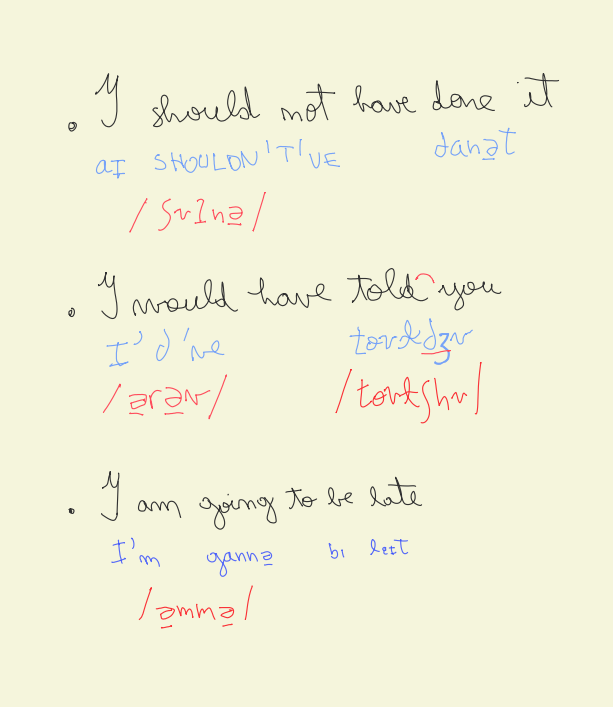 • I should not have done it
aI SHOULDN'T'VE danə̲t
/ʃʊɪnə̲/
• I would have told you
I'd've toʊɫdʒʊ
/ə̲rə̲v/ /toʊɫʃhʊ/
• I am going to be late
I'm gannə̲ bi leɪt
/ə̲mmə̲/